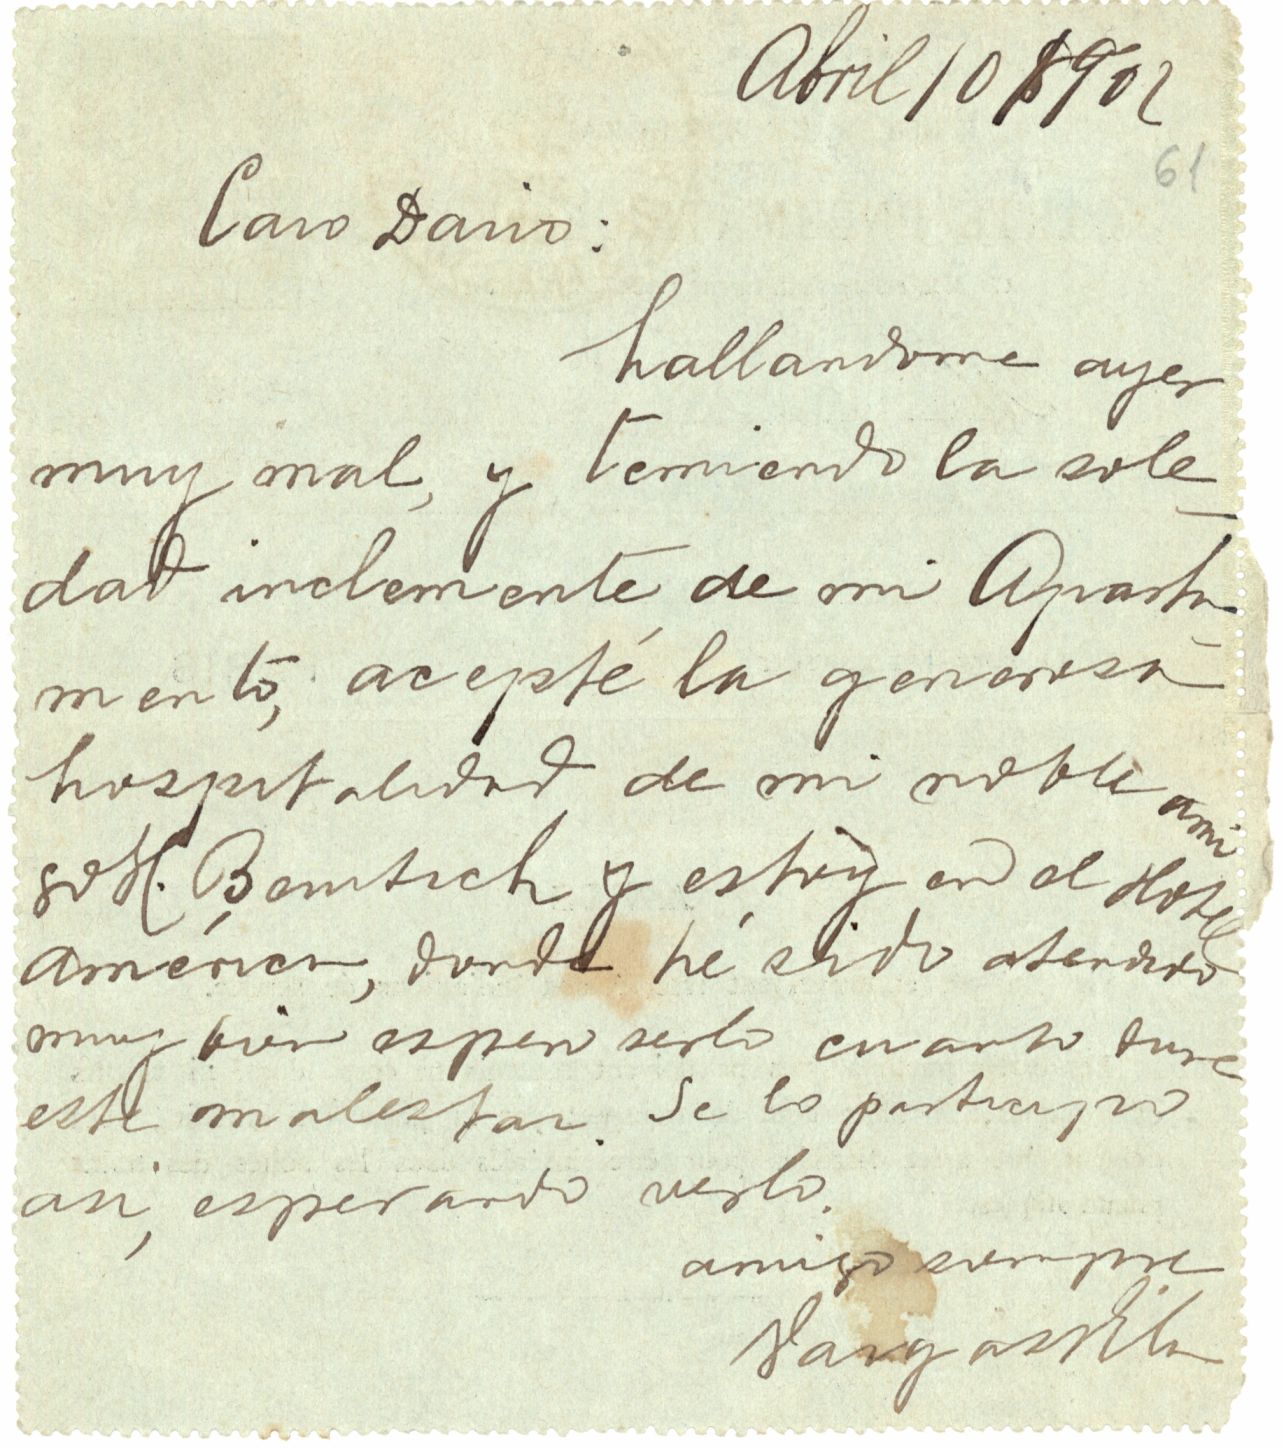 Abril 10 1902
61
Caro Dario:
hallandome ayer
muy mal, y temiendo la sole
dad inclemente de mi Aparta
mento, acepté la generosa
hospitalidad de mi noble ami
go y estoy en el Hotel
América, donde hé sido atendido
muy bien espero serlo cuanto dure
este malestar. Se lo participo
asi, esperando verlo.
amigo siempre
Vargas Vila